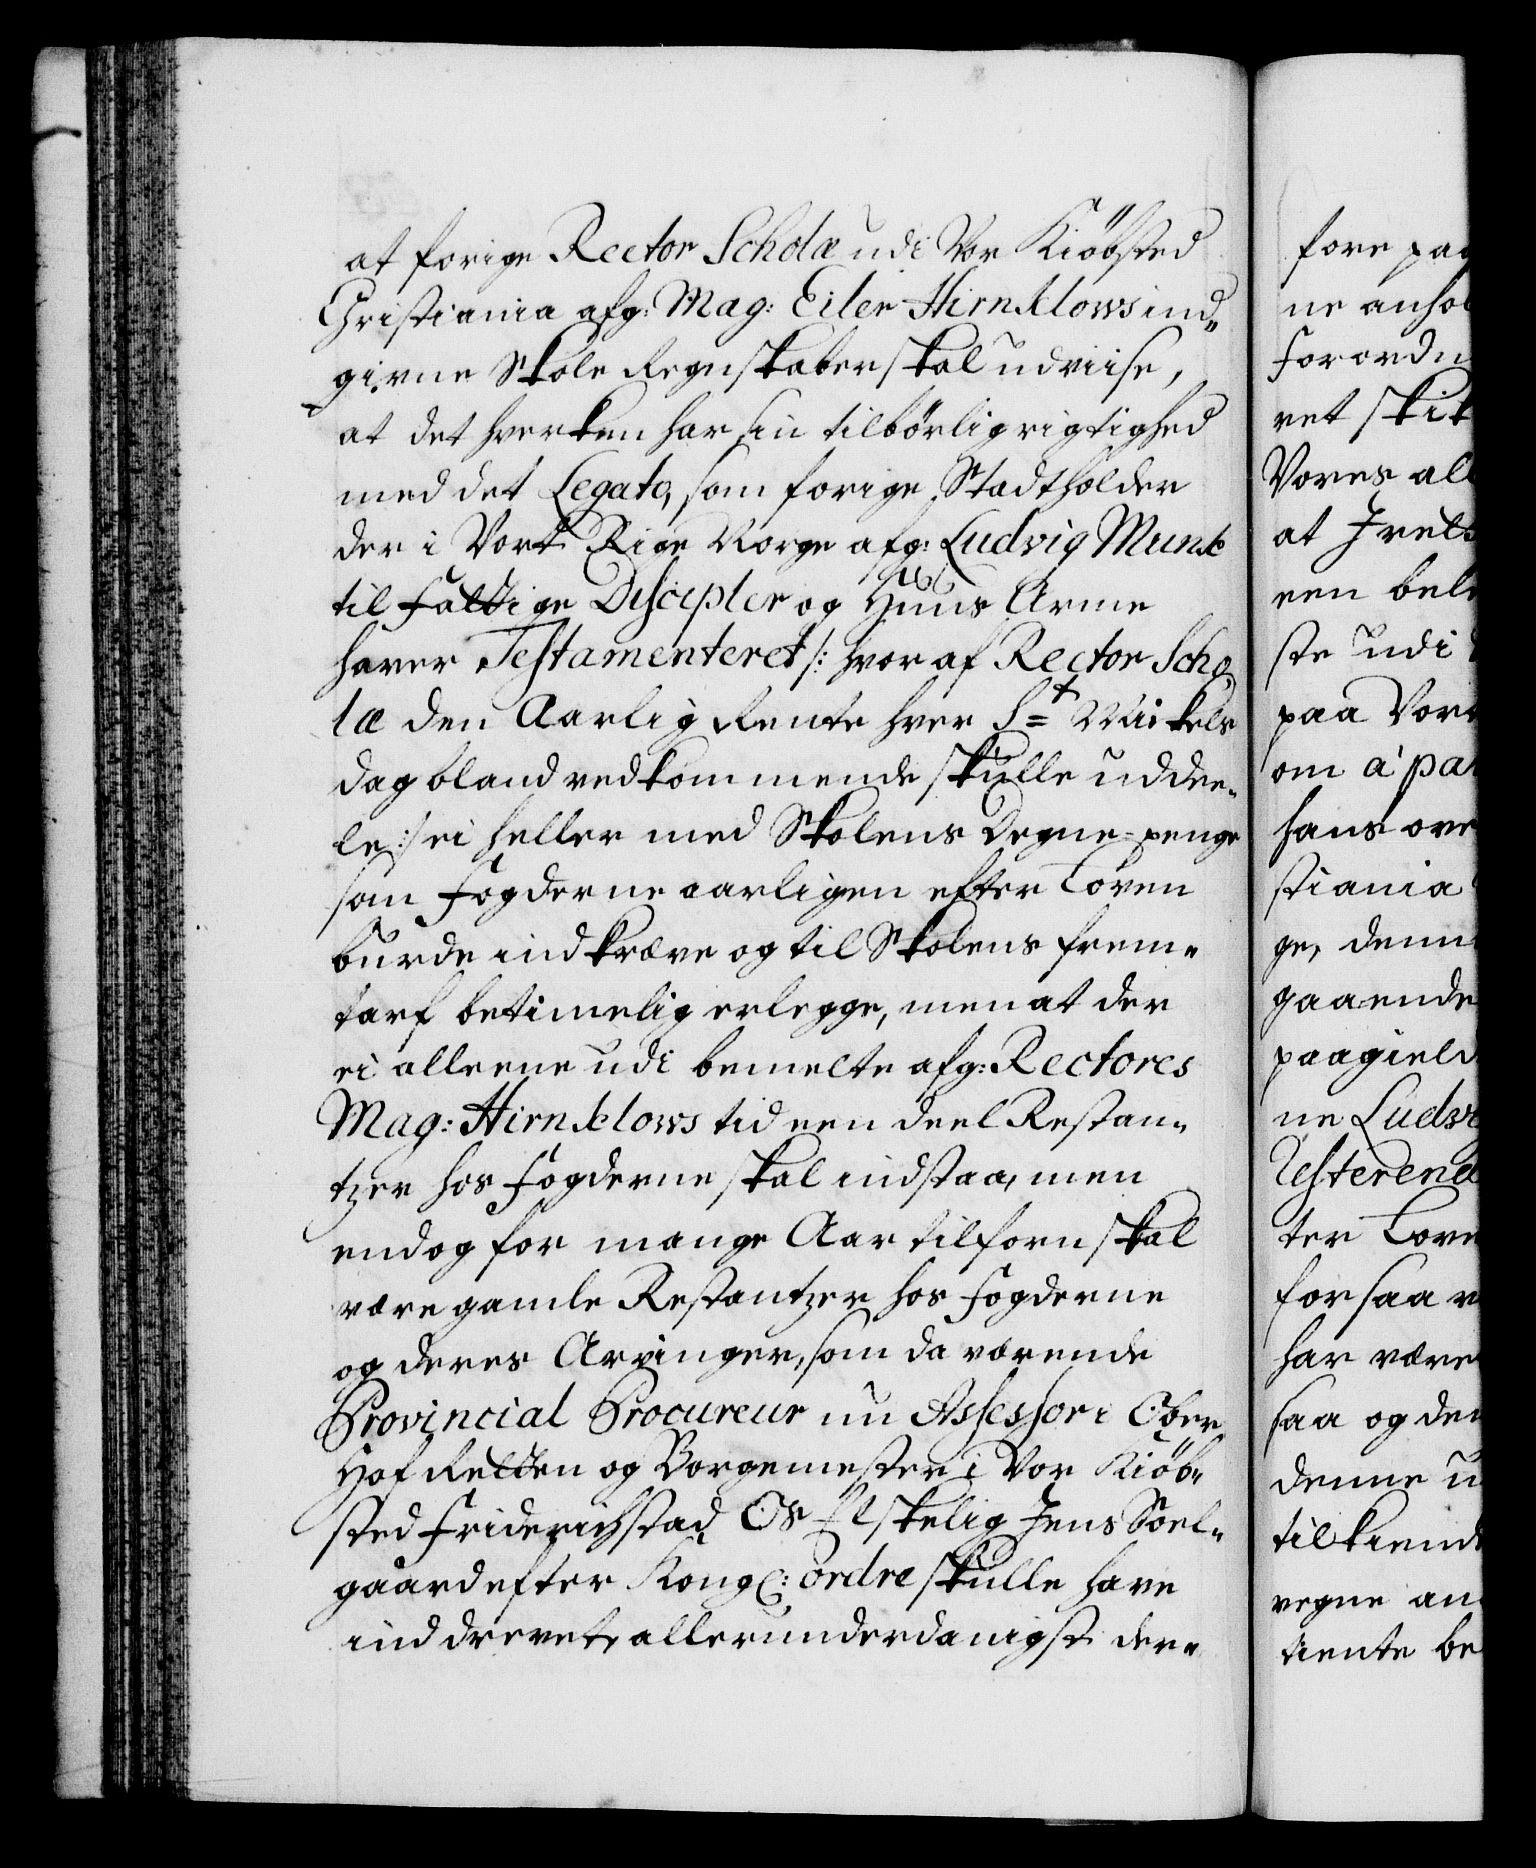 at forige Rector Scholæ udi Vor Kiöbsted
Christiania afg: Mag: Eiler Hirnklows ind„
givne Skole Regnskaber skal udviise,
at det hverken har sin tilbörlig rigtighed
med det Legato, som forige Stadtholder
der i Vort Rige Norge afg: Ludvig Munk
til Fattige Discipler og Huus Arme
haver Testamenteret /: hvoraf Rector Scho„
læ den Aarlig Rente hver St Mickels
dag bland vedkommende skulle uddee„
le :/ ei heller med Skolens Degne-penge
som Fogderne aarligen efter Loven
burde indkræve og til Skolens frem„
tarf betimelig erlegge, men at der
ei alleene udi bemelte afg: Rectores
Mag: Hirnklows tid een deel Restan„
tzer hos Fogderne skal indstaa, men
endog for mange Aar tilforn skal
være gamle Restantzer hos Fogderne
og deres Arvinger, som da værende
Provincial Procureur nu Assessor i Ober
Hof Retten og Borgemester i Vor Kiöb„
sted Friderichstad Os Elskelig Jens Soel„
gaard efter Kongl: ordre skulle have
inddrevet, allerunderdanigst der„
fore paa
ne anhol
Forordn
vet skik
Vores all
at Jrett
een bele
ste udi
paa Vor
om à par
hans ove
stiania
ge, denn
gaaende
paagield
ne Ludv
Testerend
ter Love
for saa v
har være
saa og de
denne u
tilkiend
vegne an
tiente be